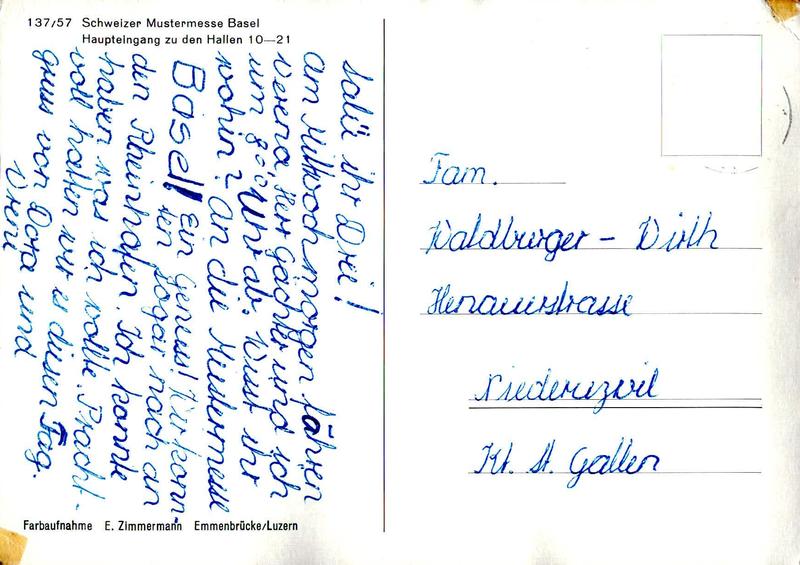 137/57 Schweizer Mustermesse Basel
Haupteingang zu den Hallen 10—21
Salü ihr Drei!
am Mittwochmorgen fahren
Verena, Herr Gächter und ich
um 8°° Uhr ab. Wisst ihr
wohin? An die Mustermesse
Basel! Ein Genuss! Wir konn-
ten sogar nach an
den Rheinhafen. Ich konnte
haben was ich wollte. Pracht-
voll hatten wir es diesen Tag.
Gruss von Dora und
Vreni
Farbaufnahme E. Zimmermann Emmenbrücke/Luzern
Fam.
Waldburger - Wirth
Henauerstrasse
Niederuzwil
Kt. St. Gallen